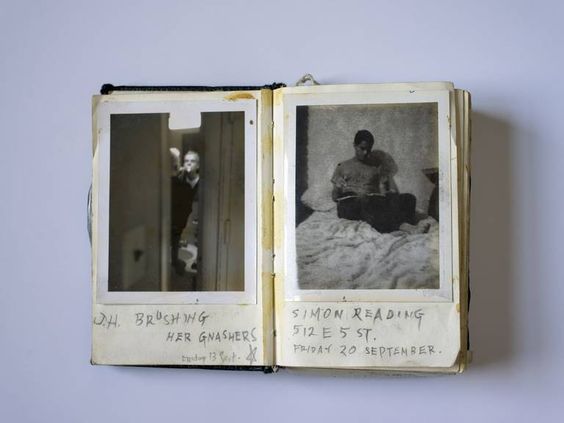 J.H. BRUSHING
HER GNASHERS
13 Sept.
SIMON READING
512 E 5 ST.
FRIDAY 20 SEPTEMBER.